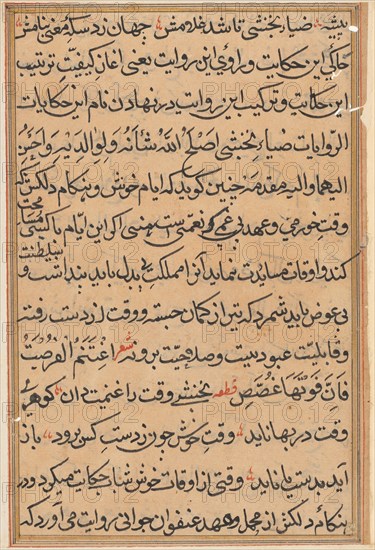 بیشه ضیا بخشی تا شد غلامش جهان زد سکه معنی بنامش
حاکی این حکایت و راوی این روایت یعنی آغاز کیفیت ترتیب
این حکایت و ترکیب این روایت در نهادن نام این حکایات
الروایات ضیاء بخشی اصلح الله شانه ولوالدیه واحسن
الیهما والیه مقدمه چنین گوید که ایام خوش و هنگام دلکش که
وقت خرمی و عهد بی غمی نعمتی است هنی اگر این ایام با کسی
کند و اوقات مساعدت نماید آنرا مملکت بی بدل باید پنداشت و سلطنت
بی عوض باید شمرد که تیر از کمان جسته و وقت از دست رفته
و قابلیت عبودیت و صد قیمت برود شعر اغتنم الفرصة
فان فوتها غصص قطعه بخشی وقت را غنیمت دان گوهر
وقت در بها ناید وقت خوش چون ز دست کس برود باز
آید بدست یا ناید وقتی از اوقات خوش شبار حکایت میکرد و در
هنگام دلکش از محمل و عهد عنفوان جوانی روایت می آورد که
PHOTO12